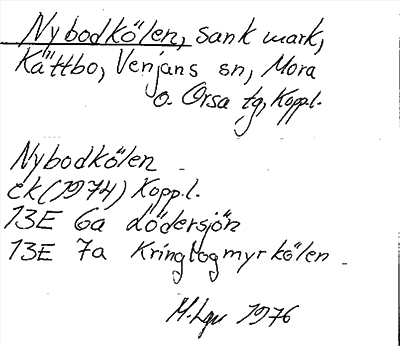 Nybodkölen, sank mark,
Kättbo, Venjans sn, Mora
o. Orsa tg, Koppl.
Nybodkölen
ek (1974) Koppl.
13E 6a Lödersjön
13E 7a Kringlogmyrkölen
1976